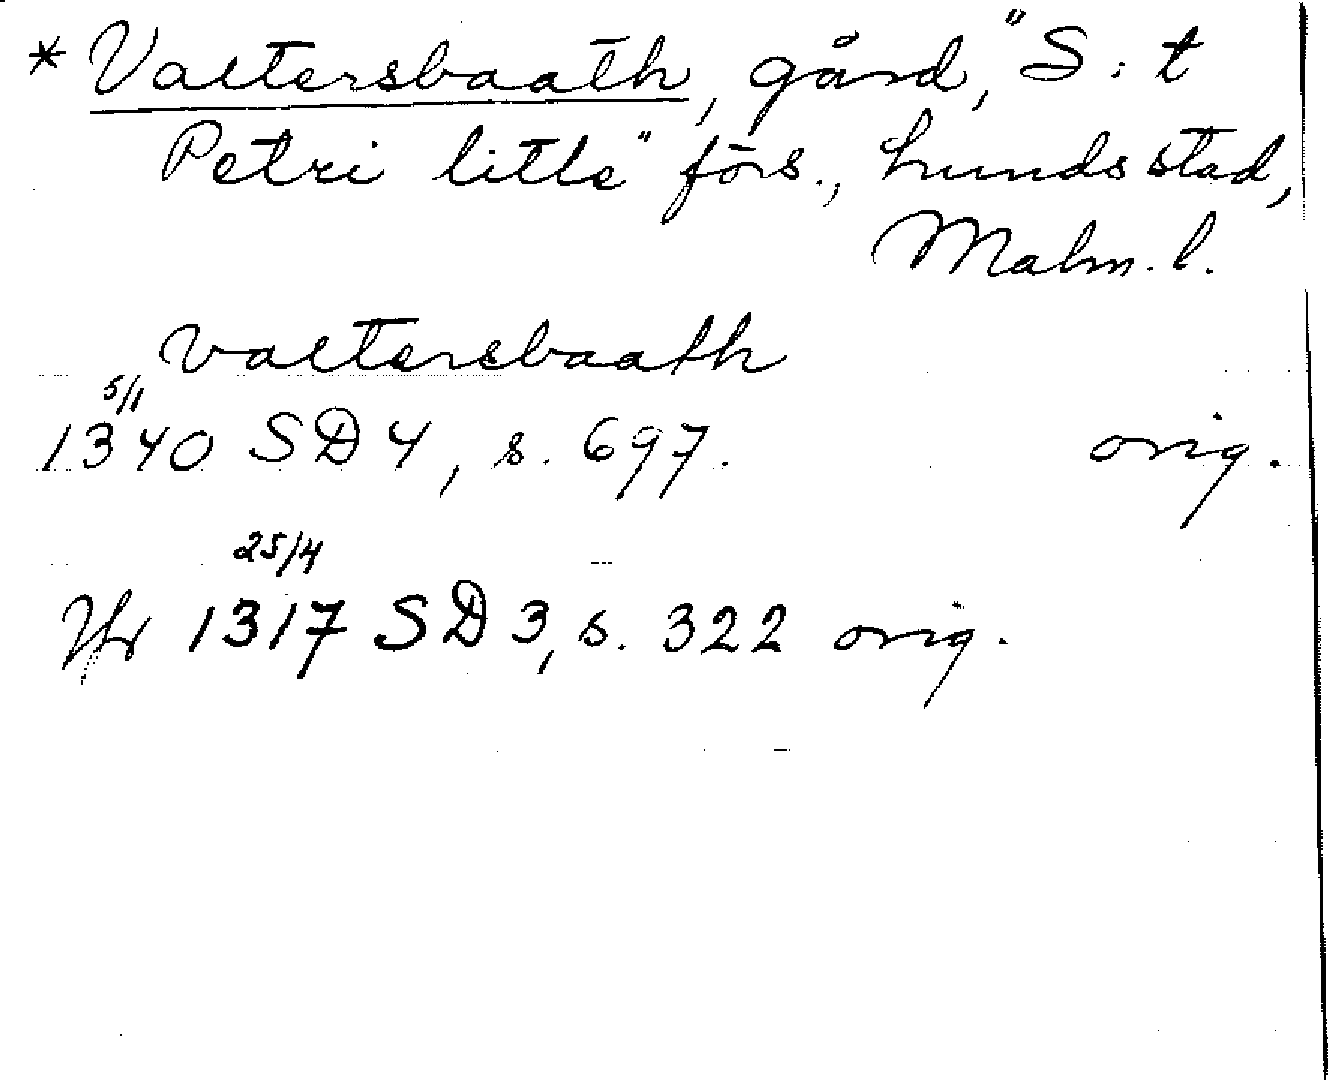 * Valtersbaath, gård, "S:t
Petri litle" förs., Lunds stad,
Malm. l.
valtersbaath
5/1
1340 SD 4, s. 697. orig.
25/4
Jfr 1317 SD 3, s. 322 orig.